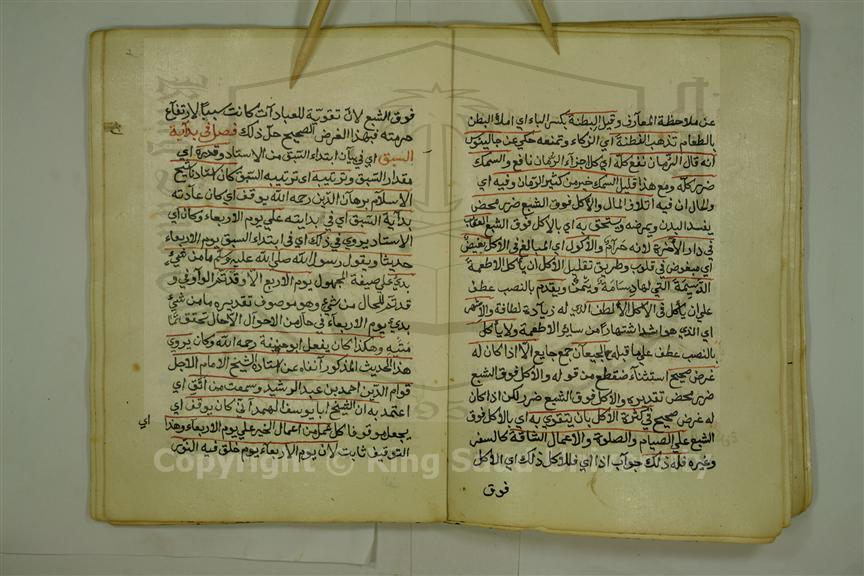 عن ملاحظة المعارف وقيل البطنة بكسر الباء اي امتلاء البطن
بالطعام تذهب الفطنة اي الزكاء وتمنعه حكي عن جالينوس
انه قال الرمان نفع كله اي كل اجزاء الرمان نافع والسمك
ضرر كله ومع هذا قليل السمك خير من كثير الرمان وفيه اي
والحال ان فيه اتلاف المال والاكل فوق الشبع ضرر محض
يفسد البدن ويمرضه ويستحق به اي بالاكل فوق الشبع العقاب
في دار الاخرة لانه حرام والاكول اي المبالغ في الاكل بغيض
اي مبغوض في قلوب وطريق تقليل الاكل ان ياكل الاطعمة
الدسيمة التي لها دسامة ويقدم بالنصب عطف
على ان ياكل في الاكل الالطف الذي له زيادة لطافة والاشهى
اي الذي هو اشد اشتهاء من سائر الاطعمة ولا ياكل
بالنصب عطف على ما قبله مع الجيعان جمع جايع الا اذا كان له
غرض صحيح استثناء منقطع من قوله والاكل فوق الشبع
ضرر محض تقديره والاكل فوق الشبع ضرر لكن اذا كان
له غرض صحيح في كثرة الاكل بان يتقوى به اي بالاكل فوق
الشبع على الصيام والصلوة والاعمال الشاقة كالسفر
وغيره فله ذلك جواب اذا اي فله الاكل ذلك اي الاكل
فوق
فوق الشبع لان تقوية للعبادات كانت سببا لارتفاع
حرمته فبهذا الغرض الصحيح حل ذلك فصل في بداية
السبق اي في بيان ابتداء السبق من الاستاد وقدره اي
مقدار السبق وترتيبه اي ترتيب السبق كان استاذنا شيخ
الاسلام برهان الدين رحمه الله يوقف اي كان عادته
بداية السبق اي في بدايته على يوم الاربعاء وكان اي
الاستاد يروي في ذلك اي في ابتداء السبق يوم الاربعاء
حديثا ويقول رسول الله صلى الله عليه وسلم ما من شيء
بدئ على صيغة المجهول يوم الاربع الا وقد تم الواو في و
قد تم للحال من شيء وهو موصوف تقديره ما من شيء
بدئ يوم الاربعاء في حال من الاحوال الا حال تحقق تما
متيه وهكذا كان يفعل ابو حنيفة رحمه الله وكان يروي
هذا الحديث المذكور آنفا عن استاده الشيخ الامام الاجل
قوام الدين احمد بن عبد الرشيد وسمعت من اثق اي
اعتمد به ان الشيخ ابا يوسف الهمداني كان يوقف اي
يجعل موقوفا كل عمل من اعمال الخير على يوم الاربعاء وهذا اي
التوقيف ثابت لان يوم الاربعاء يوم خلق فيه النور
Copyright © King Saud University